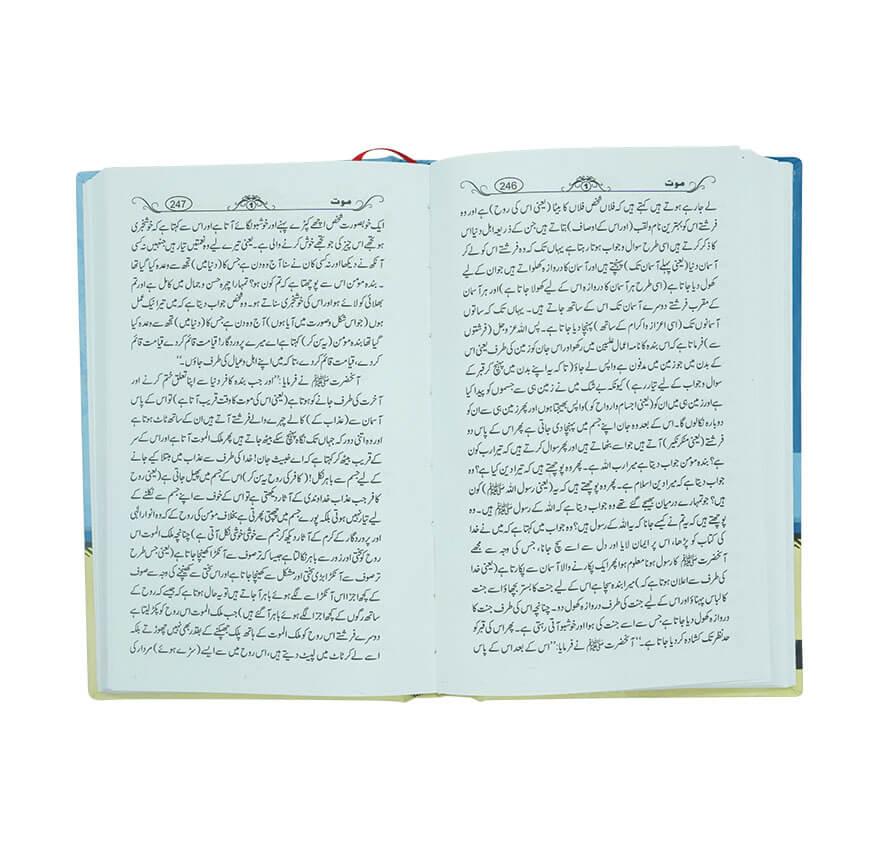 موت
1
246
لے جارہے ہوتے ہیں کہتے ہیں کہ فلاں شخص فلاں کا بیٹا (یعنی اس کی روح) ہے اور وہ
فرشتے اس کو بہترین نام ولقب (اور اس کے اوصاف) بتاتے ہیں جن کے ذریعہ اہل دنیا اس
کا ذکر کرتے ہیں اسی طرح سوال وجواب ہوتا رہتا ہے یہاں تک کہ وہ فرشتے اس کو لے کر
آسمان دنیا (یعنی پہلے آسمان تک) پہنچتے ہیں اور آسمان کا دروازہ کھلواتے ہیں جو ان کے لیے
کھول دیا جاتا ہے (اسی طرح ہر آسمان کا دروازہ اس کے لیے کھولا جاتا ہے) اور ہر آسمان
کے مقرب فرشتے دوسرے آسمان تک اس کے ساتھ جاتے ہیں۔ یہاں تک کہ ساتوں
آسمانوں تک (اسی اعزاز واکرام کے ساتھ) پہنچا دیا جاتا ہے۔ پس اللہ عزوجل (فرشتوں
سے) فرماتا ہے کہ اس بندہ کا نامہ اعمال علیین میں رکھو اور اس جان کو زمین کی طرف یعنی اس
کے بدن میں جو زمین میں مدفون ہے واپس لے جاؤ (تاکہ یہ اپنے بدن میں پہنچ کر قبر کے
سوال وجواب کے لیے تیار رہے) کیونکہ بے شک میں نے زمین ہی سے جسموں کو پیدا کیا
ہے اور زمین ہی میں ان کو (یعنی اجسام وارواح کو) واپس بھیجتا ہوں اور پھر زمین ہی سے ان کو
دوبارہ نکالوں گا۔ اس کے بعد وہ جان اپنے جسم میں پہنچا دی جاتی ہے پھر اس کے پاس دو
فرشتے (یعنی منکر نکیر) آتے ہیں جو اسے بٹھاتے ہیں اور پھر سوال کرتے ہیں کہ تیرا رب کون
ہے؟ بندہ مؤمن جواب دیتا ہے میرا رب اللہ ہے۔ پھر وہ پوچھتے ہیں کہ تیرا دین کیا ہے؟ وہ
جواب دیتا ہے کہ میرا دین اسلام ہے۔ پھر وہ پوچھتے ہیں کہ یہ (یعنی رسول اللہ ﷺ) کون
ہیں؟ جو تمہارے درمیان بھیجے گئے تھے وہ جواب دیتا ہے کہ اللہ کے رسول ﷺ ہیں۔ وہ
پوچھتے ہیں کہ یہ تم نے کیسے جانا کہ یہ اللہ کے رسول ہیں؟ وہ جواب میں کہتا ہے کہ میں نے خدا
کی کتاب کو پڑھا، اس پر ایمان لایا اور دل سے اسے سچ جانا، جس کی وجہ سے مجھے
آنحضرت ﷺ کا رسول ہونا معلوم ہوا پھر ایک پکارنے والا آسمان سے پکارتا ہے (یعنی خدا
کی طرف سے اعلان ہوتا ہے کہ) میرا بندہ سچا ہے اس کے لیے جنت کا بستر بچھاؤ اسے جنت
کا لباس پہناؤ اور اس کے لیے جنت کی طرف دروازہ کھول دو۔ چنانچہ اس کی طرف جنت کا
دروازہ کھول دیا جاتا ہے جس سے اسے جنت کی ہوا اور خوشبو آتی رہتی ہے۔ پھر اس کی قبر کو
حد نظر تک کشادہ کر دیا جاتا ہے۔“ آنحضرت ﷺ نے فرمایا: ”اس کے بعد اس کے پاس
موت
1
247
ایک خوبصورت شخص اچھے کپڑے پہنے اور خوشبو لگائے آتا ہے اور اس سے کہتا ہے کہ خوشخبری
ہو تجھے اس چیز کی جو تجھے خوش کرنے والی ہے۔ یعنی تیرے لیے وہ نعمتیں تیار ہیں جنہیں نہ کسی
آنکھ نے دیکھا اور نہ کسی کان نے سنا آج وہ دن ہے جس کا (دنیا میں) تجھ سے وعدہ کیا گیا تھا
۔ بندہ مؤمن اس سے پوچھتا ہے کہ تم کون ہو؟ تمہارا چہرہ حسن وجمال میں کامل ہے اور تم
بھلائی کو لائے ہو اور اس کی خوشخبری سناتے ہو۔ وہ شخص جواب دیتا ہے کہ میں تیرا نیک عمل
ہوں (جو اس شکل وصورت میں آیا ہوں) آج وہ دن ہے جس کا (دنیا میں) تجھ سے وعدہ کیا
گیا تھا بندہ مؤمن (یہ سن کر) کہتا ہے اے میرے پروردگار! قیامت قائم کر دے، قیامت قائم
کر دے، قیامت قائم کر دے، تاکہ میں اپنے اہل وعیال کی طرف جاؤں۔“
آنحضرت ﷺ نے فرمایا: ”اور جب بندہ کافر دنیا سے اپنا تعلق ختم کرنے اور
آخرت کی طرف جانے کو ہوتا ہے (یعنی اس کی موت کا وقت قریب آتا ہے) تو اس کے پاس
آسمان سے (عذاب کے) کالے چہرے والے فرشتے آتے ہیں ان کے ساتھ ٹاٹ ہوتا ہے
اور وہ اتنی دور کہ جہاں تک نگاہ پہنچ سکے بیٹھ جاتے ہیں پھر ملک الموت آتا ہے اور اس کے سر
کے قریب بیٹھ کر کہتا ہے کہ اے خبیث جان! خدا کی طرف سے عذاب میں مبتلا کیے جانے
کے لیے جسم سے باہر نکل! (کافر کی روح یہ سن کر) اس کے جسم میں پھیل جاتی ہے (یعنی روح
کافر جب عذاب خداوندی کے آثار دیکھتی ہے تو اس کے خوف سے اپنے جسم سے نکلنے کے
لیے تیار نہیں ہوتی بلکہ پورے جسم میں چھپتی پھرتی ہے بخلاف مؤمن کی روح کے کہ وہ انوار الٰہی
اور پروردگار کے کرم کے آثار دیکھ کر جسم سے خوشی خوشی نکل آتی ہے) چنانچہ ملک الموت اس
روح کو سختی اور زور سے باہر نکالتا ہے جیسا کہ تر صوف سے آنکڑا کھینچا جاتا ہے (یعنی جس طرح
تر صوف سے آنکڑا بڑی سختی اور مشکل سے کھینچا جاتا ہے اور اس سختی سے کھینچنے کی وجہ سے صوف
کے کچھ اجزا اس آنکڑا سے لگے ہوئے باہر آ جاتے ہیں تو یہ حال ہوتا ہے کہ جیسے کہ روح کے
ساتھ رگوں کے کچھ اجزا لگے ہوئے باہر آ گئے ہیں) جب ملک الموت اس روح کو پکڑ لیتا ہے
دوسرے فرشتے اس روح کو ملک الموت کے ہاتھ پلک جھپکنے کے بقدر بھی نہیں چھوڑتے بلکہ
اسے لے کر ٹاٹ میں لپیٹ دیتے ہیں، اس روح میں سے ایسے (سڑے ہوئے) مردار کی